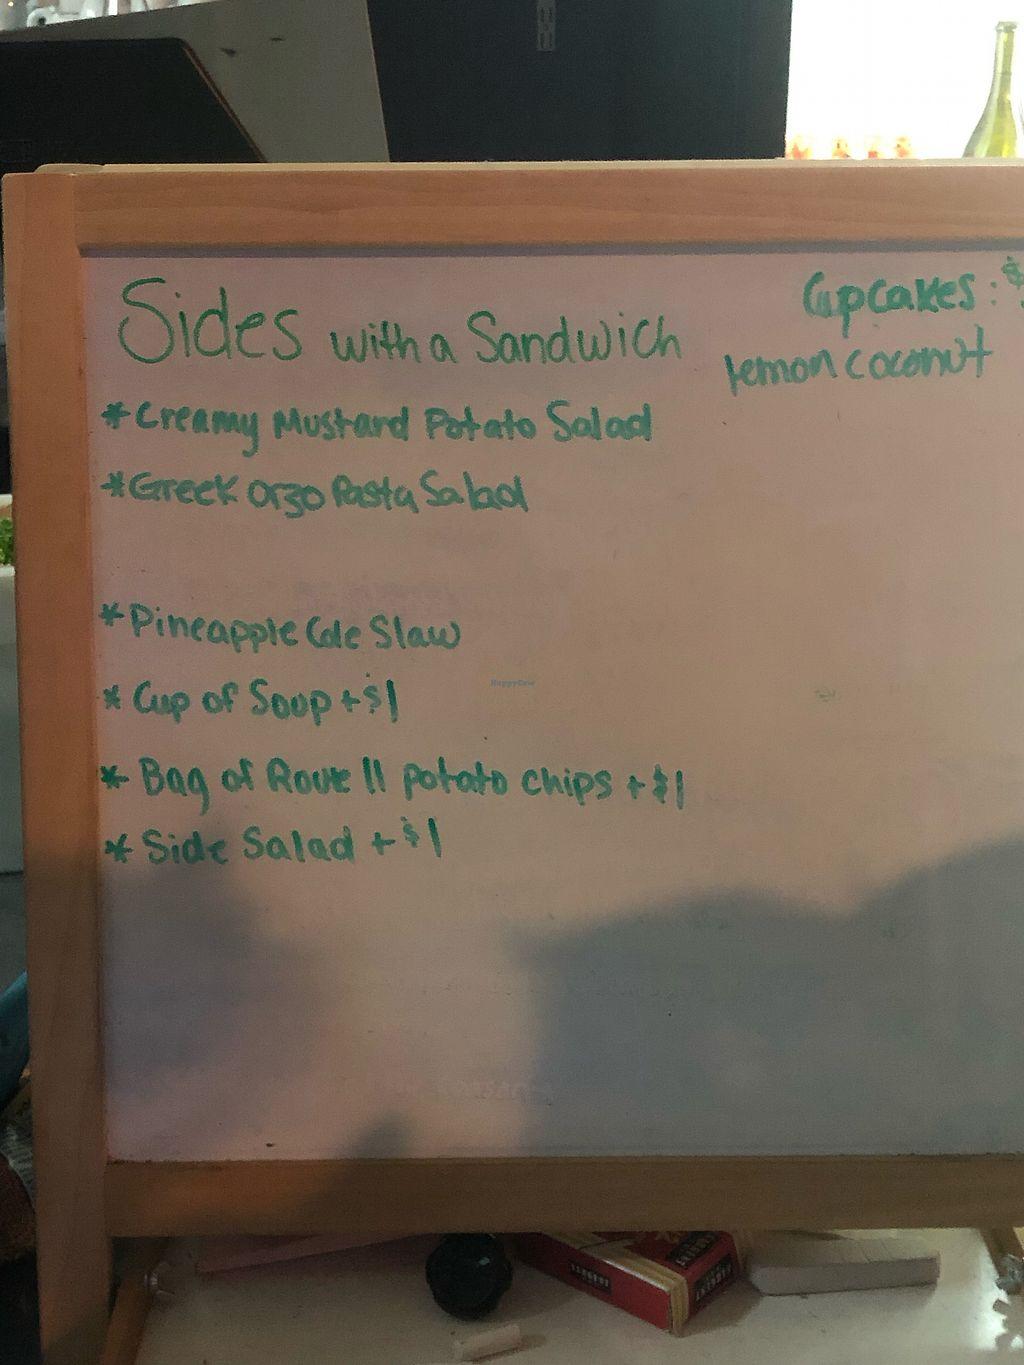 Sides with a Sandwich
Cupcakes: $
lemon coconut
*Creamy Mustard Potato Salad
*Greek Orzo Pasta Salad
*Pineapple Cole Slaw
* Cup of Soup +$1
HappyCow
* Bag of Route 11 potato chips +$1
* Side Salad +$1